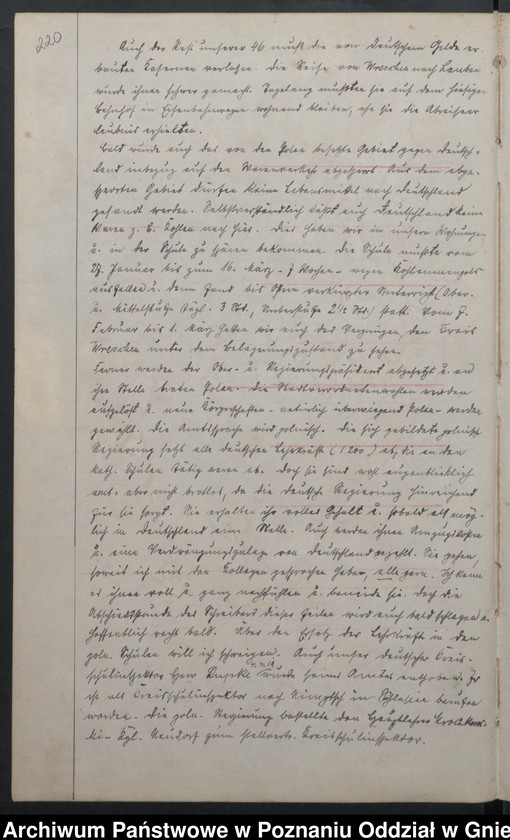 220
Auch der Rest unserer 46 muß die von deutschem Gelde er-
bauten Kasernen verlassen. Die Reise von Wreschen nach Lauban
wurde ihnen schwer gemacht. Tagelang mußten sie auf dem hiesigen
Bahnhof in Eisenbahnwagen wohnend bleiben, ehe sie die Abreiseer-
laubnis erhielten.
Bald wurde auch das von den Polen besetzte Gebiet gegen Deutsch-
land inbezug auf den Warenverkehr abgesperrt. Aus dem abge-
sperrten Gebiet dürfen keine Lebensmittel nach Deutschland
gesandt werden. Selbstverständlich läßt auch Deutschland keine
Waren z. B. Kohlen nach hier. Dies haben wir in unsern Wohnungen
u. in der Schule zu spüren bekommen. Die Schule mußte vom
27. Januar bis zum 16. März - 7 Wochen - wegen Kohlenmangels
ausfallen u. dann fand bis Ostern verkürzter Unterricht (Ober-
u. Mittelstufe tägl. 3 Std., Unterstufe 2 1/2 Std.) statt. Vom 7.
Februar bis 1. März hatten wir auch das Vergnügen, den Kreis
Wreschen unter dem Belagerungszustand zu sehen.
Ferner werden der Ober- u. Regierungspräsident abgesetzt u. an
ihre Stelle treten Polen. Die Stadtverordnetenwahlen werden
aufgelöst u. neue Körperschaften - natürlich überwiegend Polen - werden
gewählt. Die Amtssprache wird polnisch. Die sich gebildete polnische
Regierung setzt alle deutschen Lehrkräfte (1200) ab, die an den
kath. Schulen tätig waren ab. Doch sie sind wohl augenblicklich
amt- aber nicht brotlos, da die deutsche Regierung hinreichend
für sie sorgt. Sie erhalten ihr volles Gehalt u. sobald als mög-
lich in Deutschland eine Stelle. Auch werden ihnen Umzugskosten
u. eine Verdrängungszulage von Deutschland gezahlt. Sie gehen,
soweit ich mit den Kollegen gesprochen habe, alle gern. Ich kann
es ihnen voll u. ganz nachfühlen u. beneide sie. Doch die
Abschiedsstunde des Schreibers dieser Zeilen wird auch bald schlagen u.
hoffentlich recht bald. Über den Ersatz der Lehrkräfte in den
poln. Schulen will ich schweigen. Auch unser deutscher Kreis-
schulinspektor Herr wurde seines Amtes enthoben. Er
ist als Kreisschulinspektor nach Nimptsch in Schlesien berufen
worden. Die poln. Regierung bestellte den Hauptlehrer
Kgl. Neudorf zum stellvertr. Kreisschulinspektor.
Archiwum Państwowe w Poznaniu Oddział w Gnie